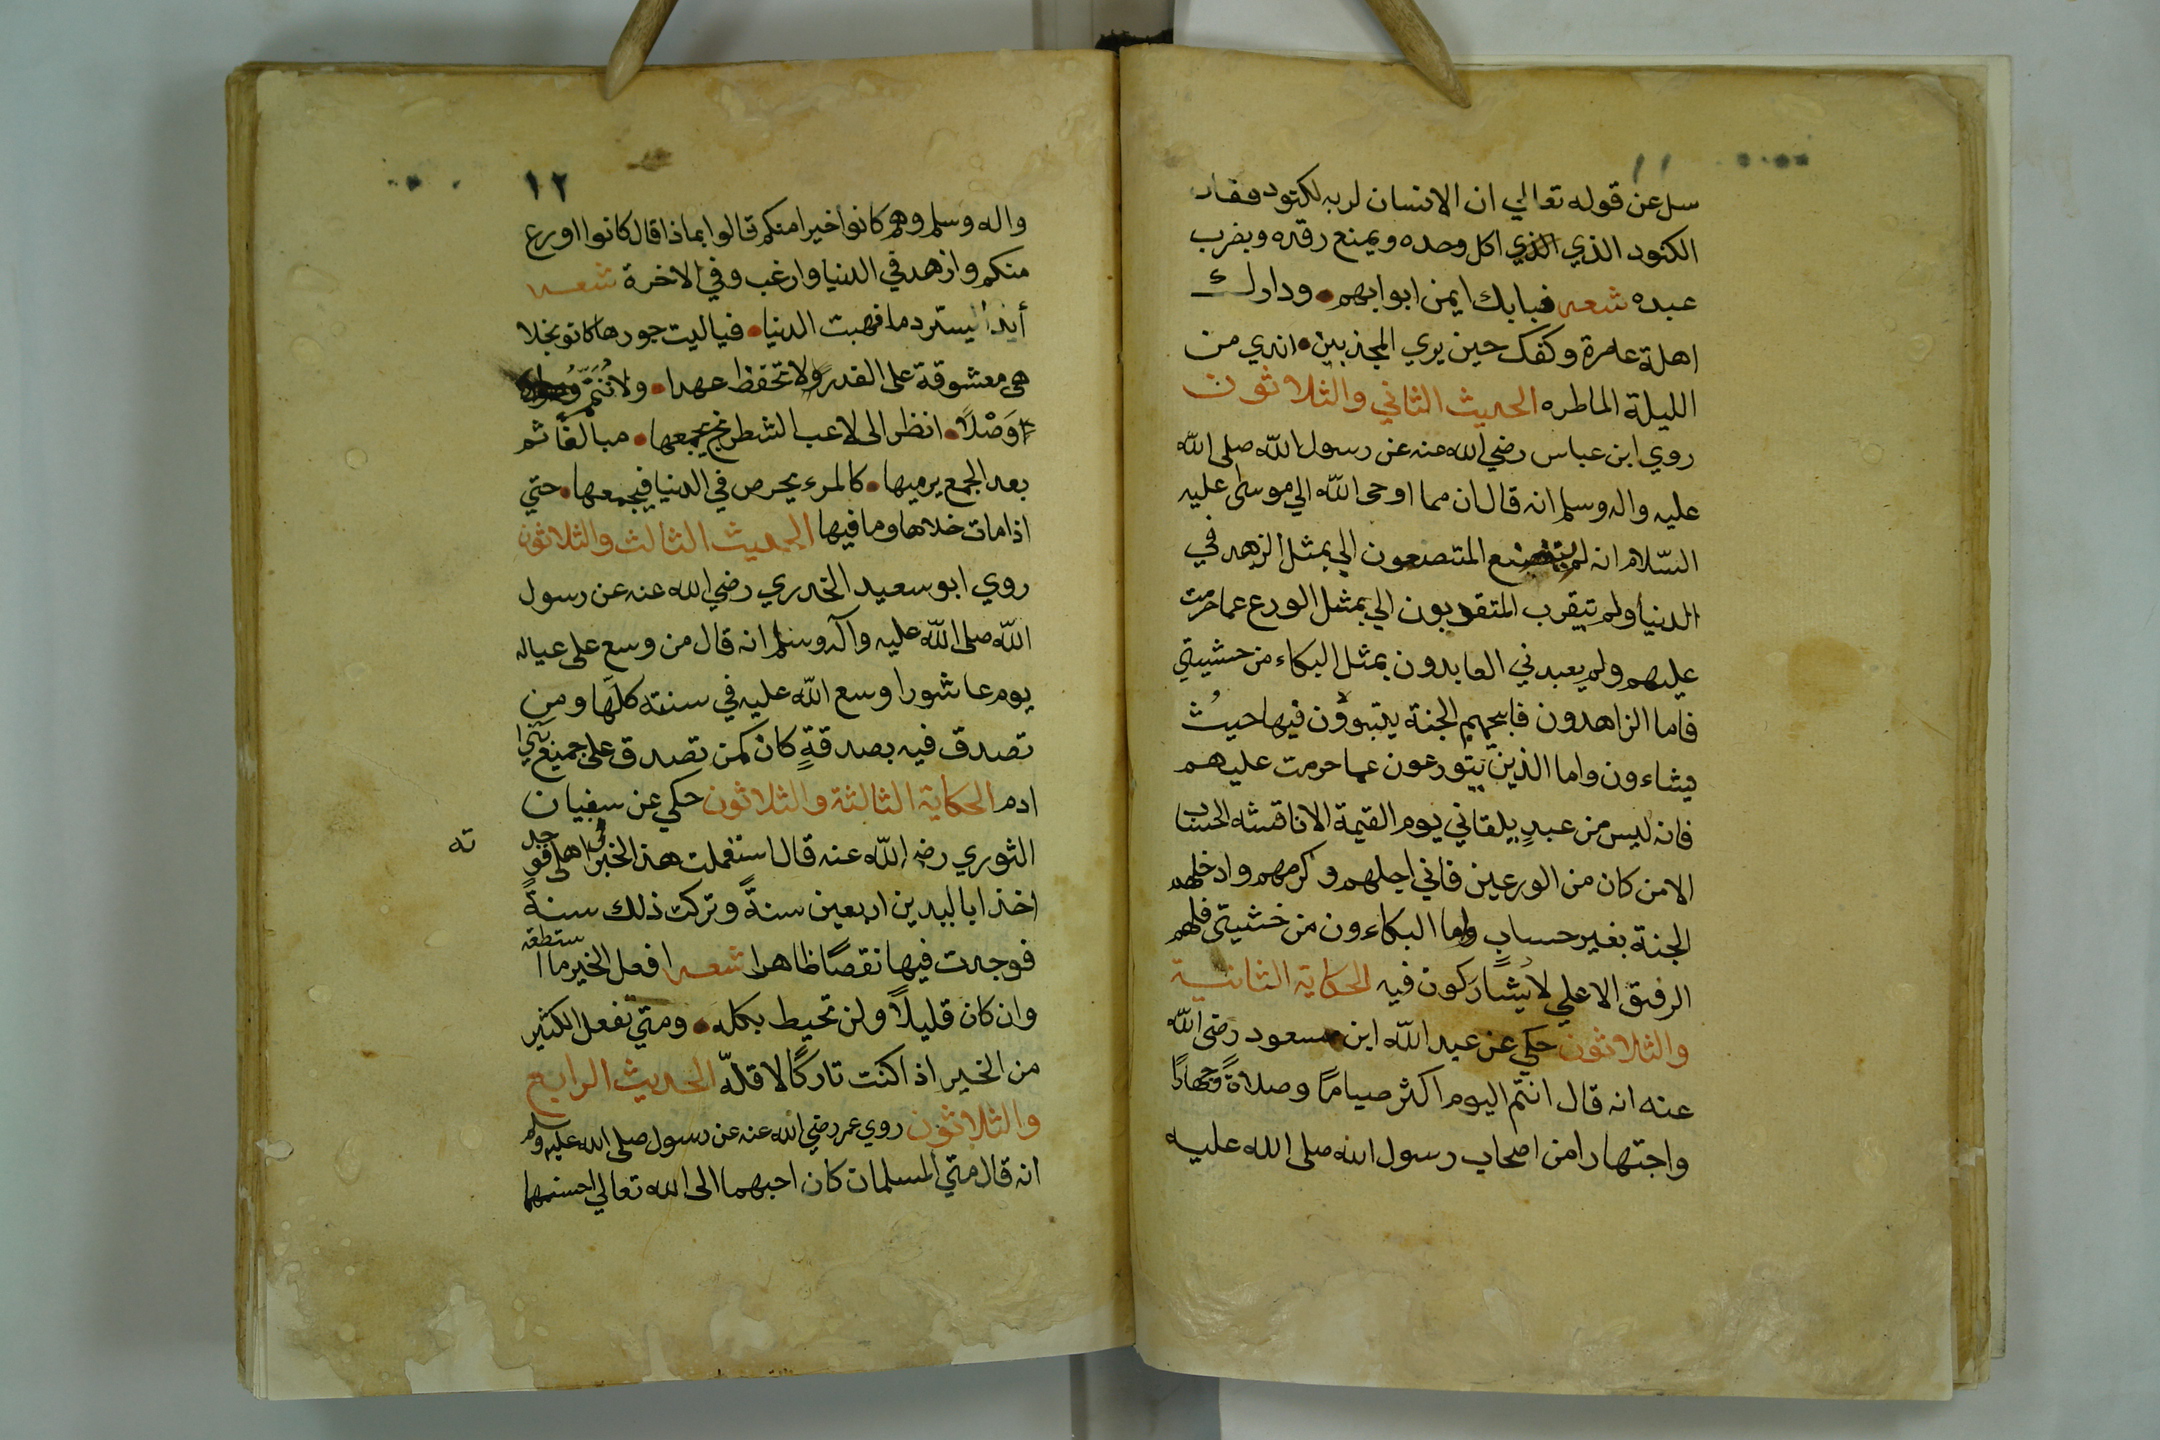 ١١
سل عن قوله تعالي ان الانسان لربه لكنود فقال
الكنود الذي الذي اكل وحده ويمنع رفده ويضرب
عبده شعر فبابك ايمن ابوابهم ودارك
اهلة عامرة وكفك حين يري المجذبين اندي من
الليلة الماطره الحديث الثاني والثلاثون
روي ابن عباس رضي الله عنه عن رسول الله صلى الله
عليه واله وسلم انه قال ان مما اوحى الله الي موسى عليه
السلام انه لم يتصنع المتصنعون الي بمثل الزهد في
الدنيا ولم يتقرب المتقربون الي بمثل الورع عما حرمت
عليهم ولم يعبدني العابدون بمثل البكاء من خشيتي
فاما الزاهدون فابيحهم الجنة يتبوؤن فيها حيث
يشاءون واما الذين يتورعون عما حرمت عليهم
فانه ليس من عبد يلقاني يوم القيمة الا ناقشته الحساب
الا من كان من الورعين فاني اجلهم وكرمهم وادخلهم
الجنة بغير حساب واما البكاءون من خشيتي فلهم
الرفيق الاعلي لا يشاركون فيه الحكاية الثانية
والثلاثون حكي عن عبد الله ابن مسعود رضى الله
عنه انه قال انتم اليوم اكثر صياما وصلاة وجهادا
واجتهادا من اصحاب رسول الله صلى الله عليه
١٢
واله وسلم وهم كانوا خيرا منكم قالوا بماذا قال كانوا اورع
منكم وازهد في الدنيا وارغب وفي الاخرة شعر
أبدا يسترد ما فهبت الدنيا فياليت جورها كانو بخلا
هى معشوقة على الغدر ولا تحفظ عهدا ولا تتم
وصلا انظر الى لاعب الشطرنج يجمعها مبالغا ثم
بعد الجمع يرميها كالمرء يحرص في الدنيا فيجمعها حتي
اذا مات خلاها وما فيها الحديث الثالث والثلاثون
روي ابو سعيد الخدري رضي الله عنه عن رسول
الله صلى الله عليه وآله وسلم انه قال من وسع على عياله
يوم عاشورا وسع الله عليه في سنته كلها ومن
تصدق فيه بصدقة كان كمن تصدق على جميع بني
ادم الحكاية الثالثة والثلاثون حكي عن سفيان
الثوري رضه الله عنه قال استعملت هذا الخبر اهلى
ته
اخذا باليدين اربعين سنة وتركت ذلك سنة
فوجدت فيها نقصا ظاهرا شعر افعل الخير ما استطعه
وان كان قليلا ولن تحيط بكله ومتي تفعل الكثير
من الخير اذا كنت تاركا لاقله الحديث الرابع
والثلاثون روي عمر رضي الله عنه عن رسول صلى الله عليه وسلم
انه قال متي المسلمان كان احبهما الى الله تعالي احسنهما